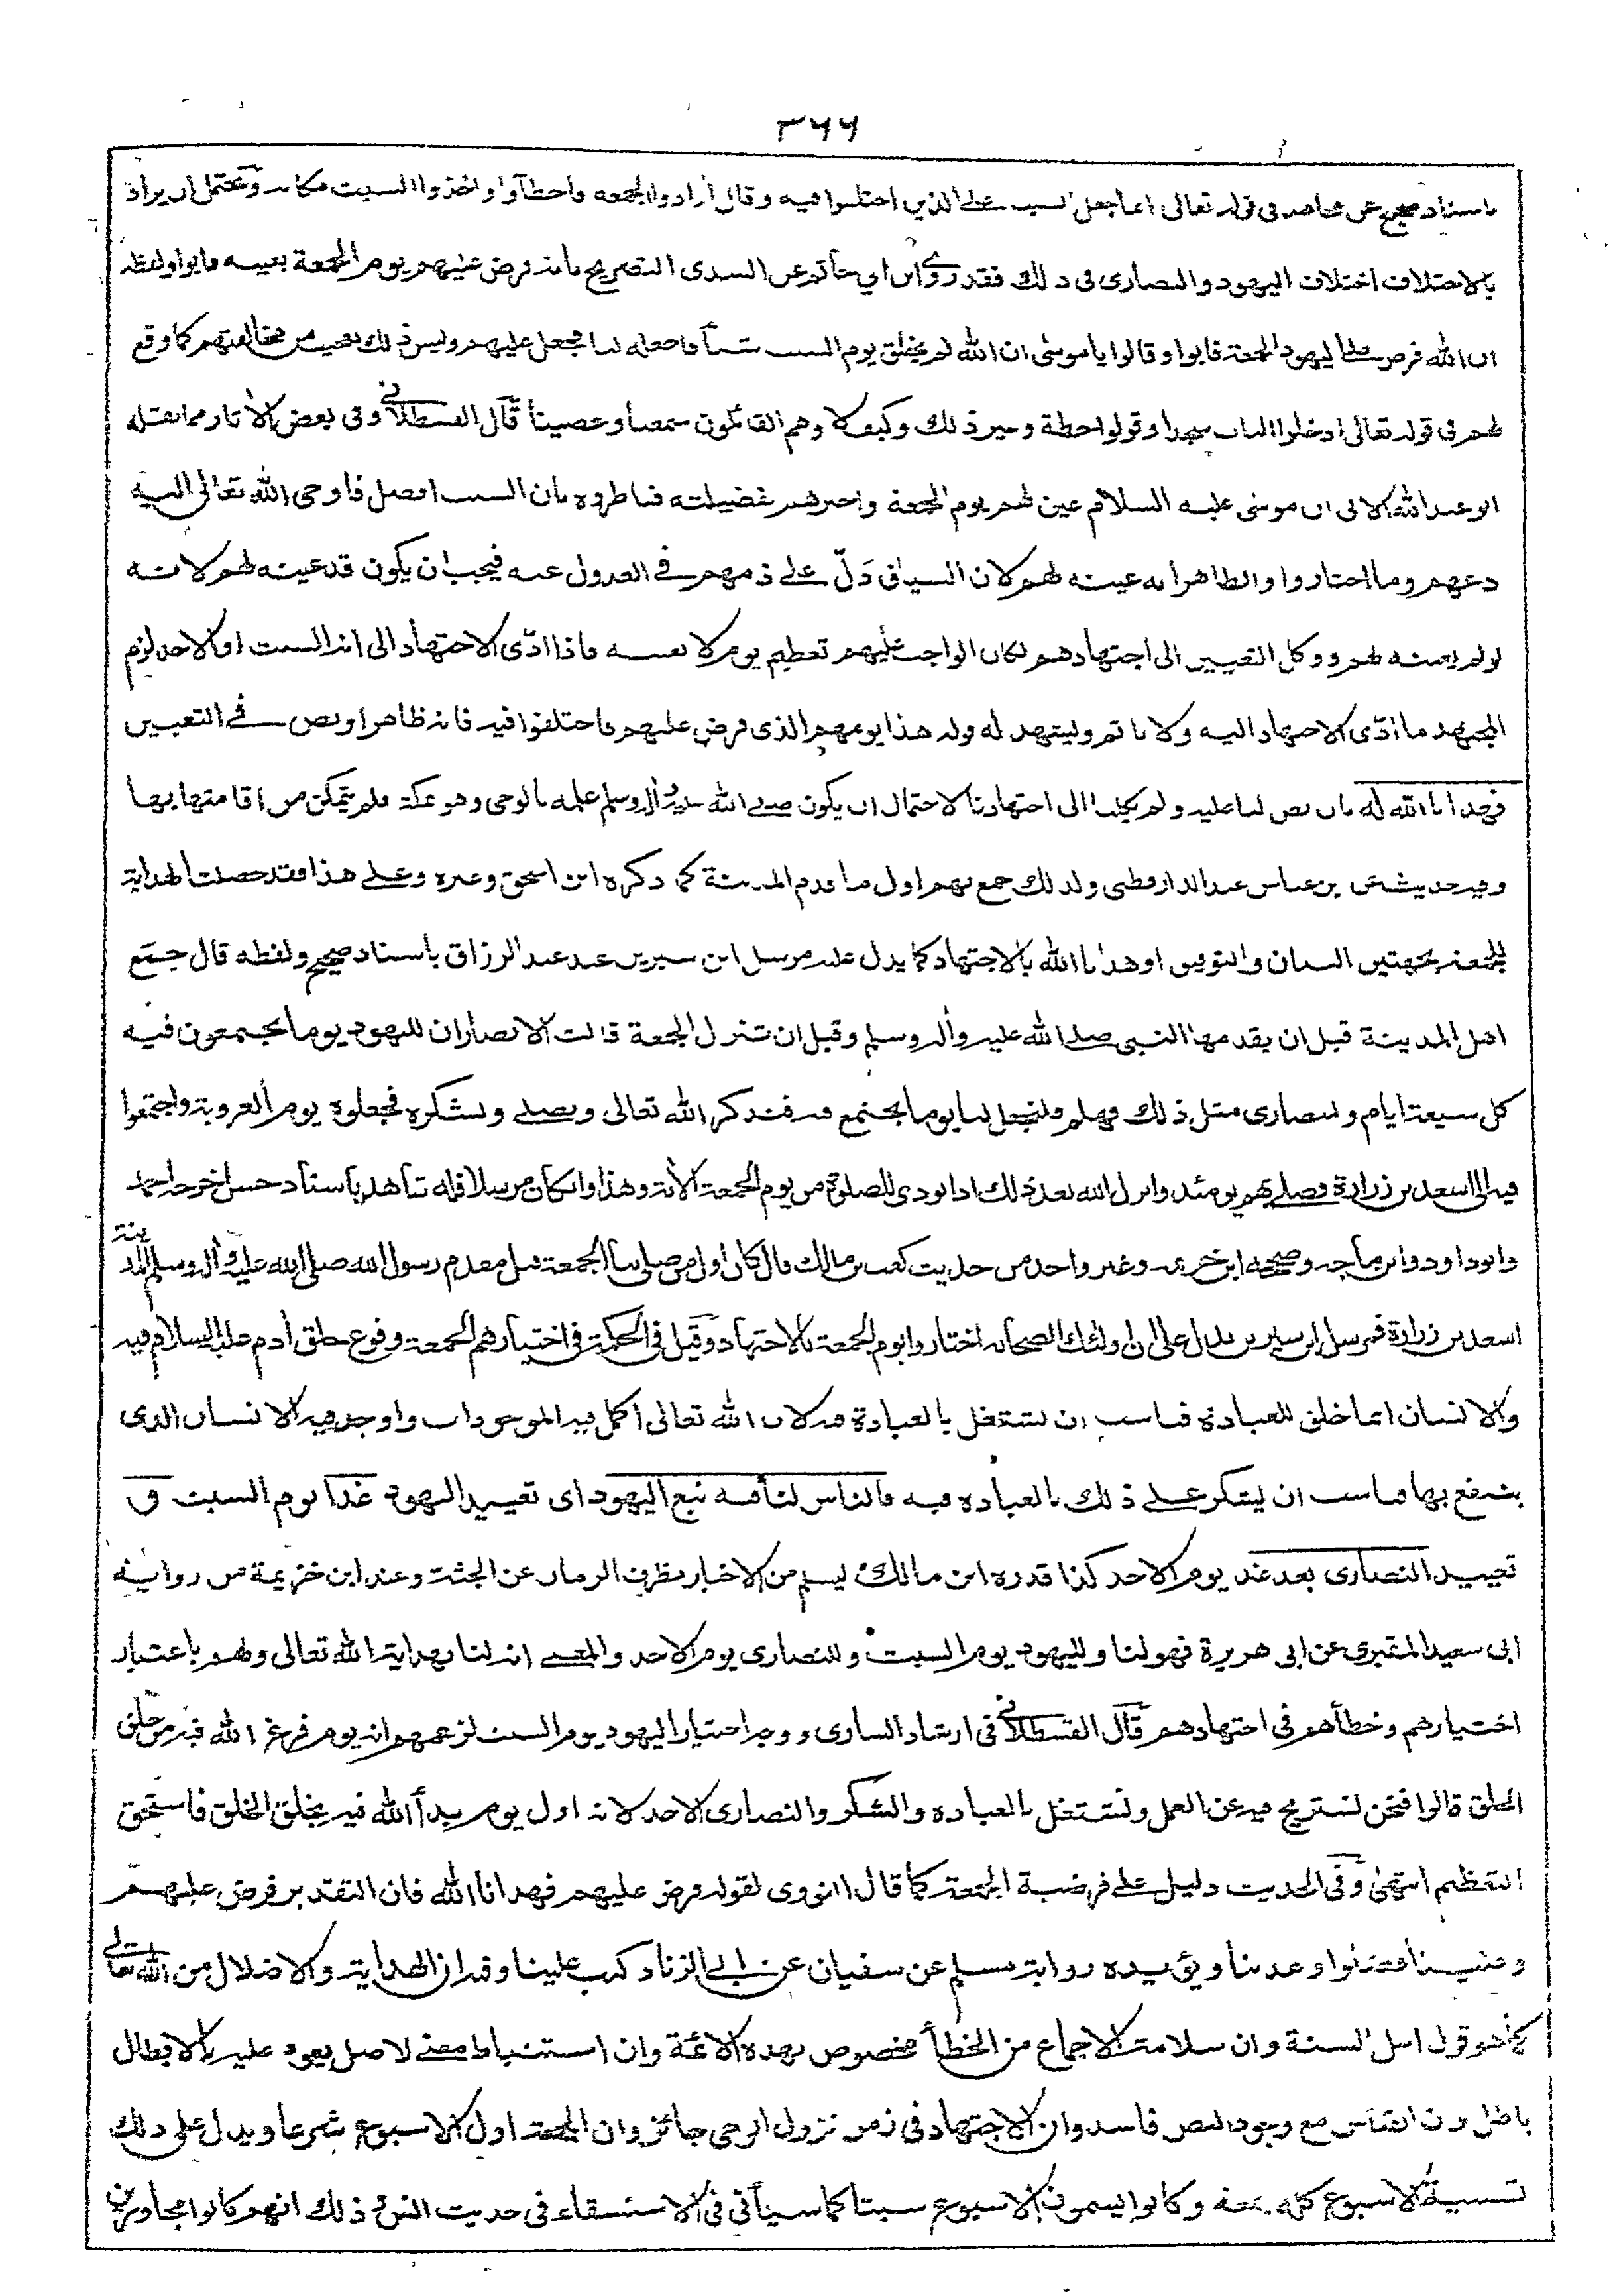 ٣٦٦
باسناد صحيح عن مجاهد فى قوله تعالى انما جعل السبت على الذين اختلفوا فيه وقال ارادوا الجمعة فاخطأوا واخذوا السبت مكانه ويحتمل ان يراد
بالاختلاف اختلاف اليهود والنصارى فى ذلك فقد روى ابن ابي حاتم عن السدى التصريح بانه فرض عليهم يوم الجمعة بعينه فابوا ولفظه
ان الله فرض على اليهود الجمعة فابوا وقالوا يا موسى ان الله لم يخلق يوم السبت شيأ فاجعله لنا فجعل عليهم وليس ذلك بعجيب من مخالفتهم كما وقع
لهم فى قوله تعالى ادخلوا الباب سجدا وقولوا حطة وغير ذلك وكيف لا وهم القائلون سمعنا وعصينا قال القسطلانى وفى بعض الأثار مما نقله
ابو عبد الله الابى ان موسى عليه السلام عين لهم يوم الجمعة واخبرهم بفضيلته فناظروه بان السبت افضل فاوحى الله تعالى اليه
دعهم وما اختاروا والظاهر انه عينه لهم لان السياق دلّ على ذمهم فى العدول عنه فيجب ان يكون قد عينه لهم لانه
لو لم يعينه لهم ووكل التعيين الى اجتهادهم لكان الواجب عليهم تعظيم يوم لا بعينه فاذا ادّى الاجتهاد الى انه السبت او الاحد لزم
المجتهد ما ادّى الاجتهاد اليه ولا ياثم ويشهد له قوله هذا يومهم الذى فرض عليهم فاختلفوا فيه فانه ظاهر او نص فى التعيين
فهدانا الله له بان نص لنا عليه ولم يكلنا الى اجتهادنا لاحتمال ان يكون صلى الله عليه وأله وسلم علمه بالوحى وهو بمكة فلم يتمكن من اقامتها بها
وفيه حديث عن ابن عباس عند الدارقطنى ولذلك جمع بهم اول ما قدم المدينة كما ذكره ابن اسحق وغيره وعلى هذا فقد حصلت الهداية
للجمعة بجهتين البيان والتوفيق او هدانا الله بالاجتهاد كما يدل عليه مرسل ابن سيرين عند عبد الرزاق باسناد صحيح ولفظه قال جمّع
اهل المدينة قبل ان يقدمها النبى صلى الله عليه وأله وسلم وقبل ان تنزل الجمعة قالت الانصار ان لليهود يوما يجتمعون فيه
كل سبعة ايام وللنصارى مثل ذلك فهلم فلنجعل لنا يوما نجتمع فيه فنذكر الله تعالى ونصلى ونشكره فجعلوه يوم العروبة واجتمعوا
فيه الى اسعد بن زرارة فصلى بهم يومئذ وانزل الله بعد ذلك اذا نودى للصلوة من يوم الجمعة الأية وهذا وان كان مرسلا فله شاهد باسناد حسن اخرجه احمد
وابوداود وابن ماجه وصححه ابن خزيمة وغير واحد من حديث كعب بن مالك قال كان اول من صلى بنا الجمعة قبل مقدم رسول الله صلى الله عليه وأله وسلم المدينة
اسعد بن زرارة فمرسل ابن سيرين يدل على ان اولئك الصحابة اختاروا يوم الجمعة بالاجتهاد وقيل فى الحكمة فى اختيارهم الجمعة وقوع خلق أدم عليه السلام فيه
والانسان انما خلق للعبادة فناسب ان يشتغل بالعبادة فيه لان الله تعالى اكمل فيه الموجودات واوجد فيه الانسان الذى
ينتفع بها فناسب ان يشكر على ذلك بالعبادة فيه فالناس لنا فيه تبع اليهود اى تعييد اليهود غدا يوم السبت و
تعييد النصارى بعد غد يوم الاحد كذا قدره ابن مالك ليسلم من الاخبار بظرف الزمان عن الجثة وعند ابن خزيمة من رواية
ابى سعيد المقبرى عن ابى هريرة فهو لنا ولليهود يوم السبت وللنصارى يوم الاحد والمعنى انه لنا بهداية الله تعالى ولهم باعتبار
اختيارهم وخطأهم فى اجتهادهم قال القسطلانى فى ارشاد السارى ووجه اختيار اليهود يوم السبت لزعمهم انه يوم فرغ الله فيه من خلق
الخلق قالوا فنحن نستريح فيه عن العمل ونشتغل بالعبادة والشكر والنصارى الاحد لانه اول يوم بدأ الله فيه بخلق الخلق فاستحق
التعظيم انتهى وفى الحديث دليل على فرضية الجمعة كما قال النووى لقوله فرض عليهم فهدانا الله فان التقدير فرض عليهم
وعلينا فضلوا وهدينا ويؤيده رواية مسلم عن سفيان عن ابى الزناد كتب علينا وفيه ان الهداية والاضلال من الله تعالى
كما هو قول اهل السنة وان سلامة الاجماع من الخطأ مخصوص بهذه الائمة وان استنباط معنى لاصل يعود عليه بالابطال
باطل وان القياس مع وجود النص فاسد وان الاجتهاد فى زمن نزول الوحى جائز وان الجمعة اول الاسبوع شرعا ويدل على ذلك
تسمية الاسبوع كله جمعة وكانوا يسمون الاسبوع سبتا كما سيأتى فى الاستسقاء فى حديث انس وذلك انهم كانوا مجاورين